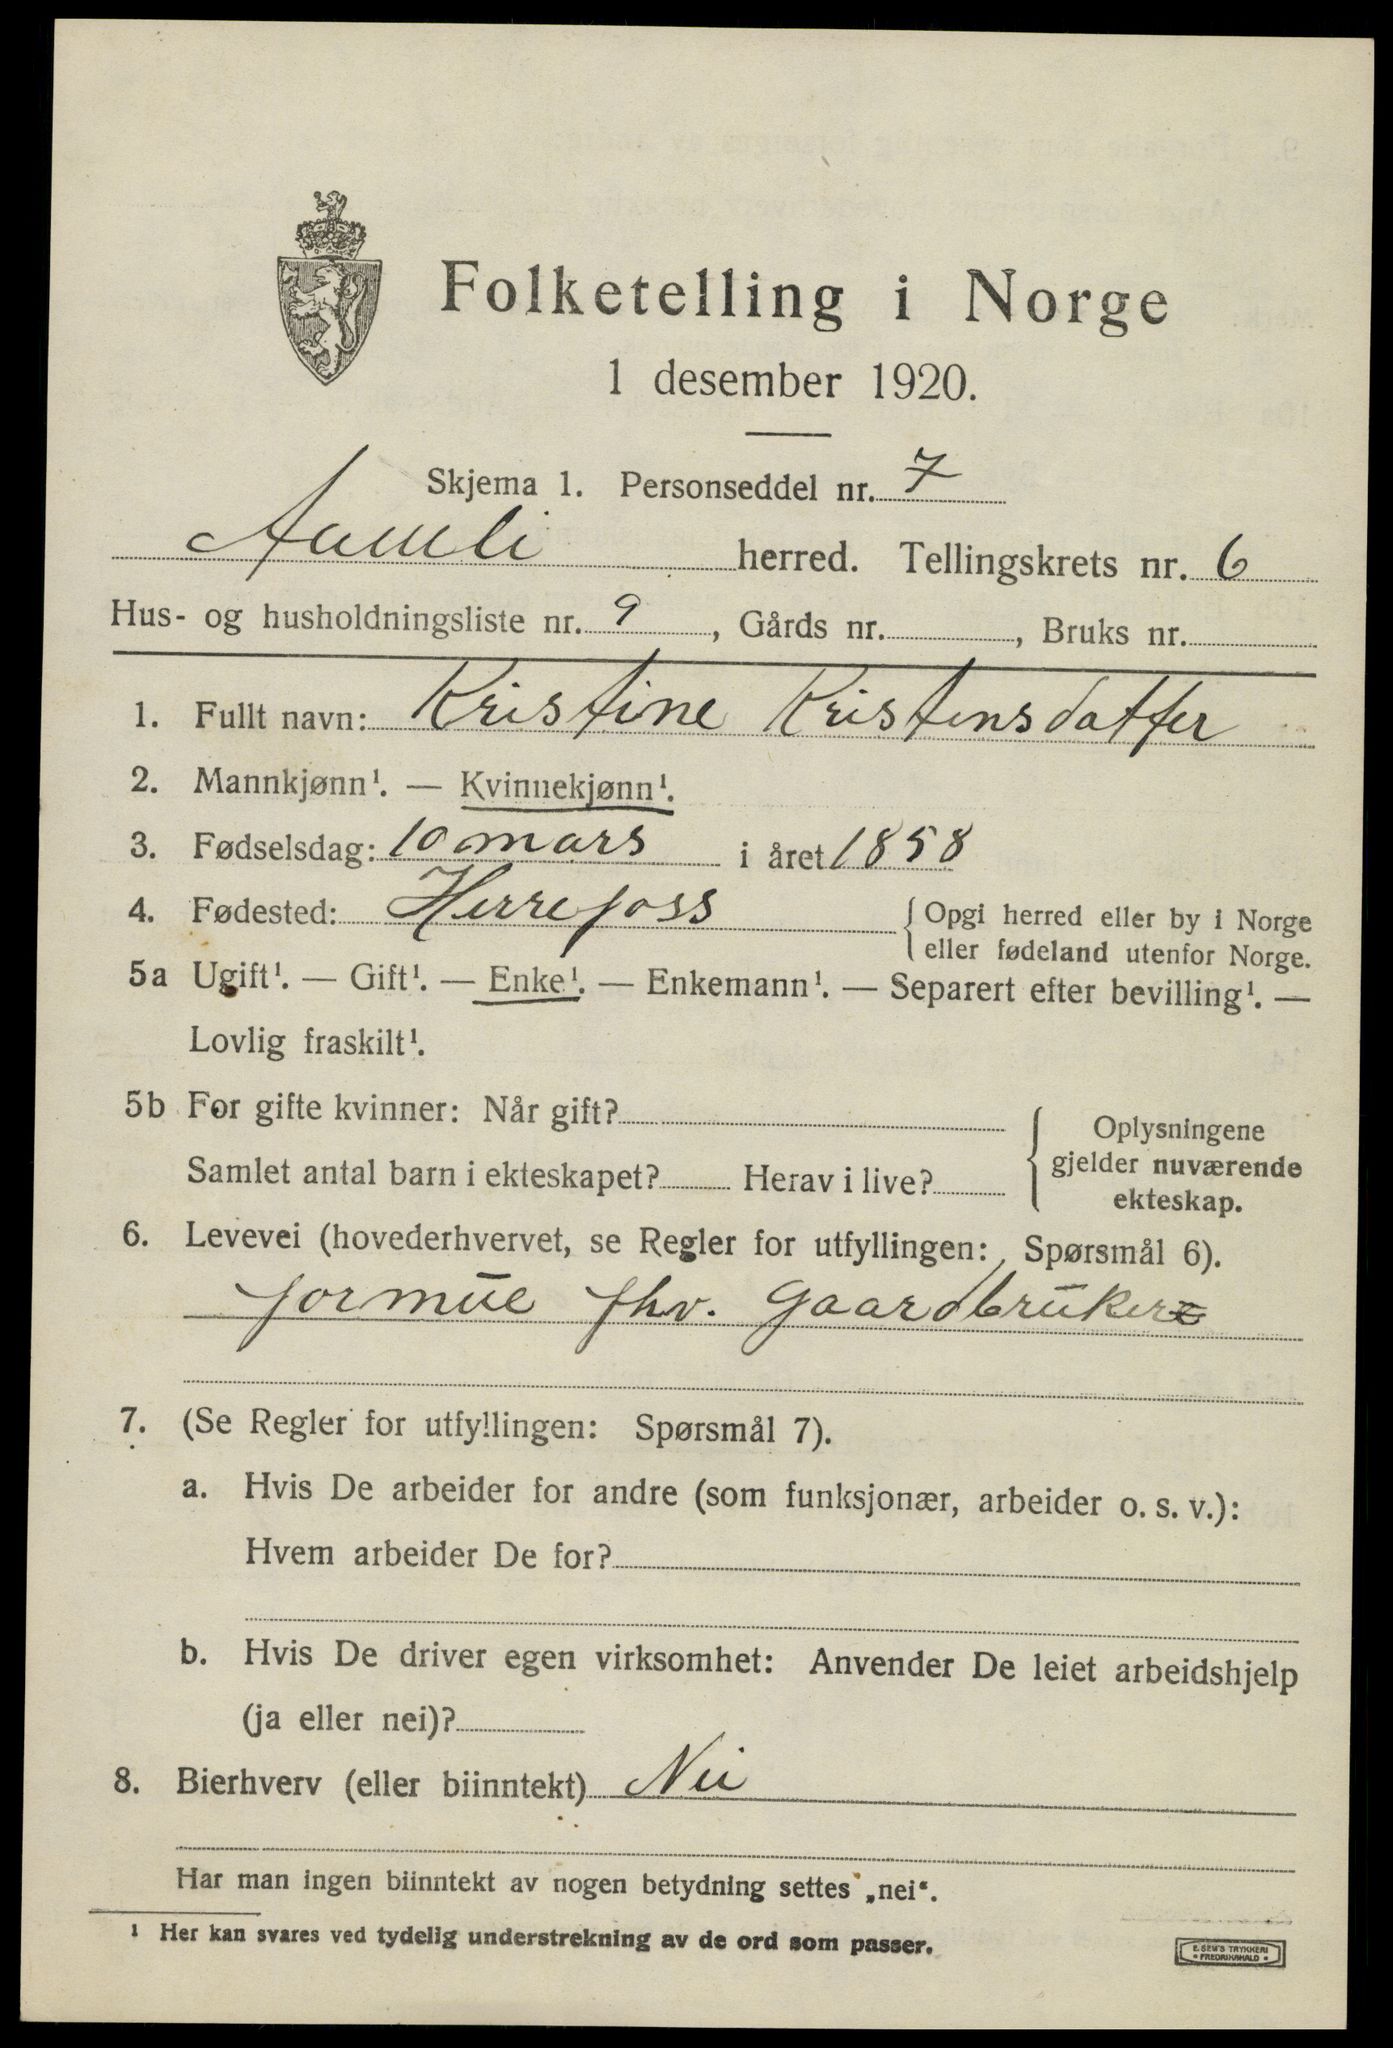 Folketelling i Norge
1 desember 1920.
Skjema 1. Personseddel nr. 7
Aamli herred. Tellingskrets nr. 6
Hus- og husholdningsliste nr. 9, Gårds nr. , Bruks nr.
1. Fullt navn: Kristine Kristensdatter
2. Mannkjønn¹. — Kvinnekjønn¹.
3. Fødselsdag: 10 mars i året 1858
4. Fødested: Herrefoss { Opgi herred eller by i Norge
eller fødeland utenfor Norge.
5a Ugift¹. — Gift¹. — Enke¹. — Enkemann¹. — Separert efter bevilling¹. —
Lovlig fraskilt¹.
5b For gifte kvinner: Når gift? { Oplysningene
gjelder nuværende
ekteskap.
Samlet antal barn i ekteskapet? Herav i live?
6. Levevei (hovederhvervet, se Regler for utfyllingen: Spørsmål 6).
formue fhv. gaardbruker
7. (Se Regler for utfyllingen: Spørsmål 7).
a. Hvis De arbeider for andre (som funksjonær, arbeider o. s. v.):
Hvem arbeider De for?
b. Hvis De driver egen virksomhet: Anvender De leiet arbeidshjelp
(ja eller nei)?
8. Bierhverv (eller biinntekt) Nei
Har man ingen biinntekt av nogen betydning settes „nei“.
¹ Her kan svares ved tydelig understrekning av de ord som passer.
E. SEM'S TRYKKERI
• FREDRIKSHALD •